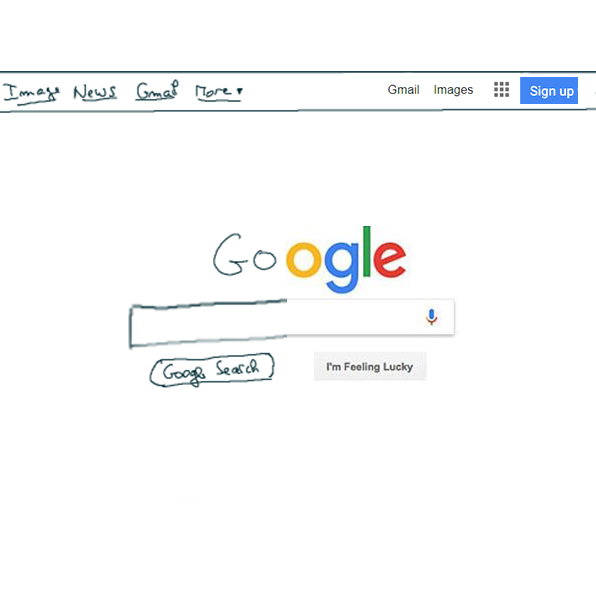 Image News Gmail More Gmail Images Sign up
Google
Google Search I'm Feeling Lucky